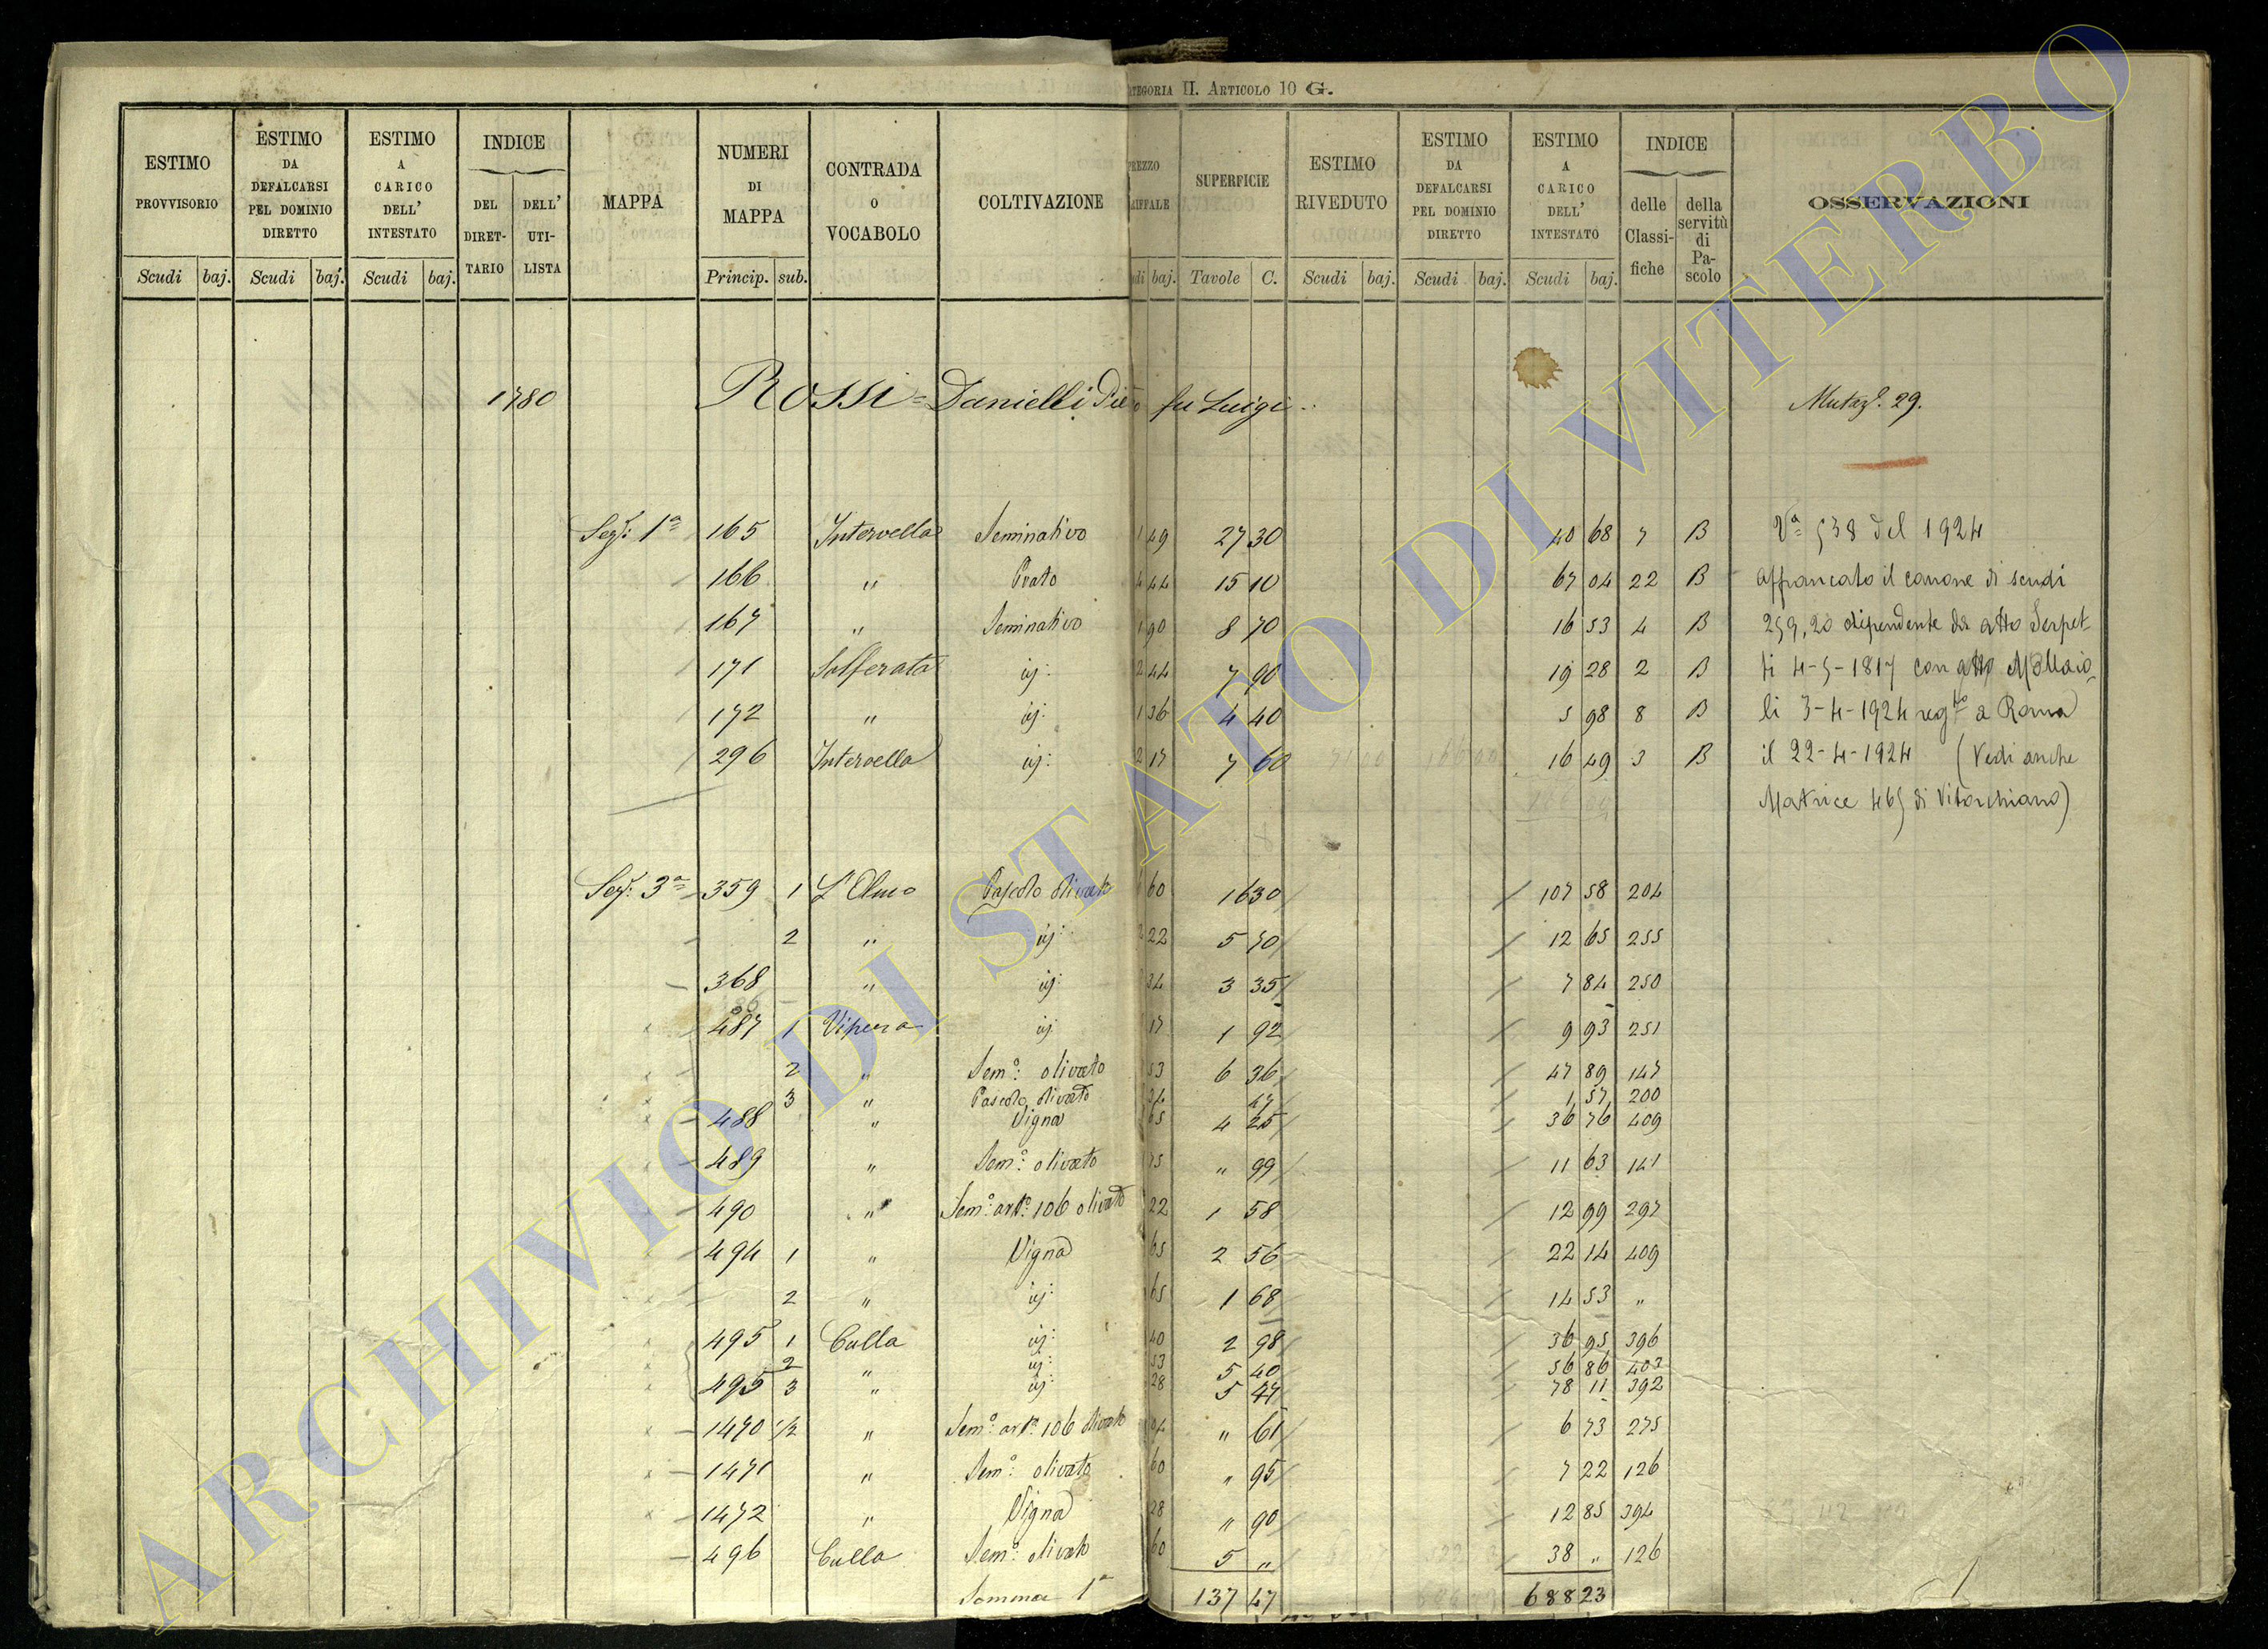 ATEGORIA II. ARTICOLO 10 G.
ESTIMO PROVVISORIO
Scudi baj.
ESTIMO DA DEFALCARSI PEL DOMINIO DIRETTO
Scudi baj.
ESTIMO A CARICO DELL' INTESTATO
Scudi baj.
INDICE
DEL DIRET-TARIO
DELL' UTI-LISTA
MAPPA
NUMERI DI MAPPA
Princip. sub.
CONTRADA O VOCABOLO
COLTIVAZIONE
PREZZO
baj.
SUPERFICIE
Tavole C.
ESTIMO RIVEDUTO
Scudi baj.
ESTIMO DA DEFALCARSI PEL DOMINIO DIRETTO
Scudi baj.
ESTIMO A CARICO DELL' INTESTATO
Scudi baj.
INDICE
delle Classi-fiche
della servitù di Pa-scolo
OSSERVAZIONI
1780 Rossi = Danielli fu Luigi Mutaz. 29.
Sez: 1ª 165 Intervella Seminativo 1 49 27 30 40 68 7 B Vª 538 del 1924
166 " Prato 4 44 15 10 67 04 22 B affrancato il canone di scudi
167 " Seminativo 1 90 8 70 16 53 4 B 259,20 dipendente da atto Serpet-
171 Solferata iij: 2 44 7 90 19 28 2 B ti 4-5-1817 con atto
172 " iij: 1 36 4 40 5 98 8 B li 3-4-1924 regto a Roma
296 Intervella iij: 2 17 7 60 16 49 3 B il 22-4-1924 (Vedi anche
Matrice 465 di Vitorchiano)
Sez: 3ª 359 1 L'Olmo Pascolo olivato 60 16 30 107 58 204
2 " iij: 22 5 70 12 65 255
368 " iij: 34 3 35 7 84 250
487 1 Vipera iij 17 1 92 9 93 251
2 " Sem°: olivato 53 6 36 47 89 147
3 " Pascolo olivato 34 47 1 57 200
488 " Vigna 65 4 25 36 76 409
489 " Sem°: olivato 75 " 99 11 63 141
490 " Sem°: art°: 106 olivato 22 1 58 12 99 297
494 1 " Vigna 65 2 56 22 14 409
2 " iij: 65 1 68 14 53 "
495 1 Culla iij: 40 2 98 36 95 396
2 " iij: 53 5 40 56 86 403
495 3 " iij: 28 5 47 78 11 392
1470 1/2 " Sem°: art°: 106 olivato 04 " 61 6 73 275
1471 " Sem°: olivato 60 " 95 7 22 126
1472 " Vigna 28 " 90 12 85 394
496 Culla Sem°: olivato 60 5 " 38 " 126
Somma 1ª 137 47 688 23
ARCHIVIO DI STATO DI VITERBO